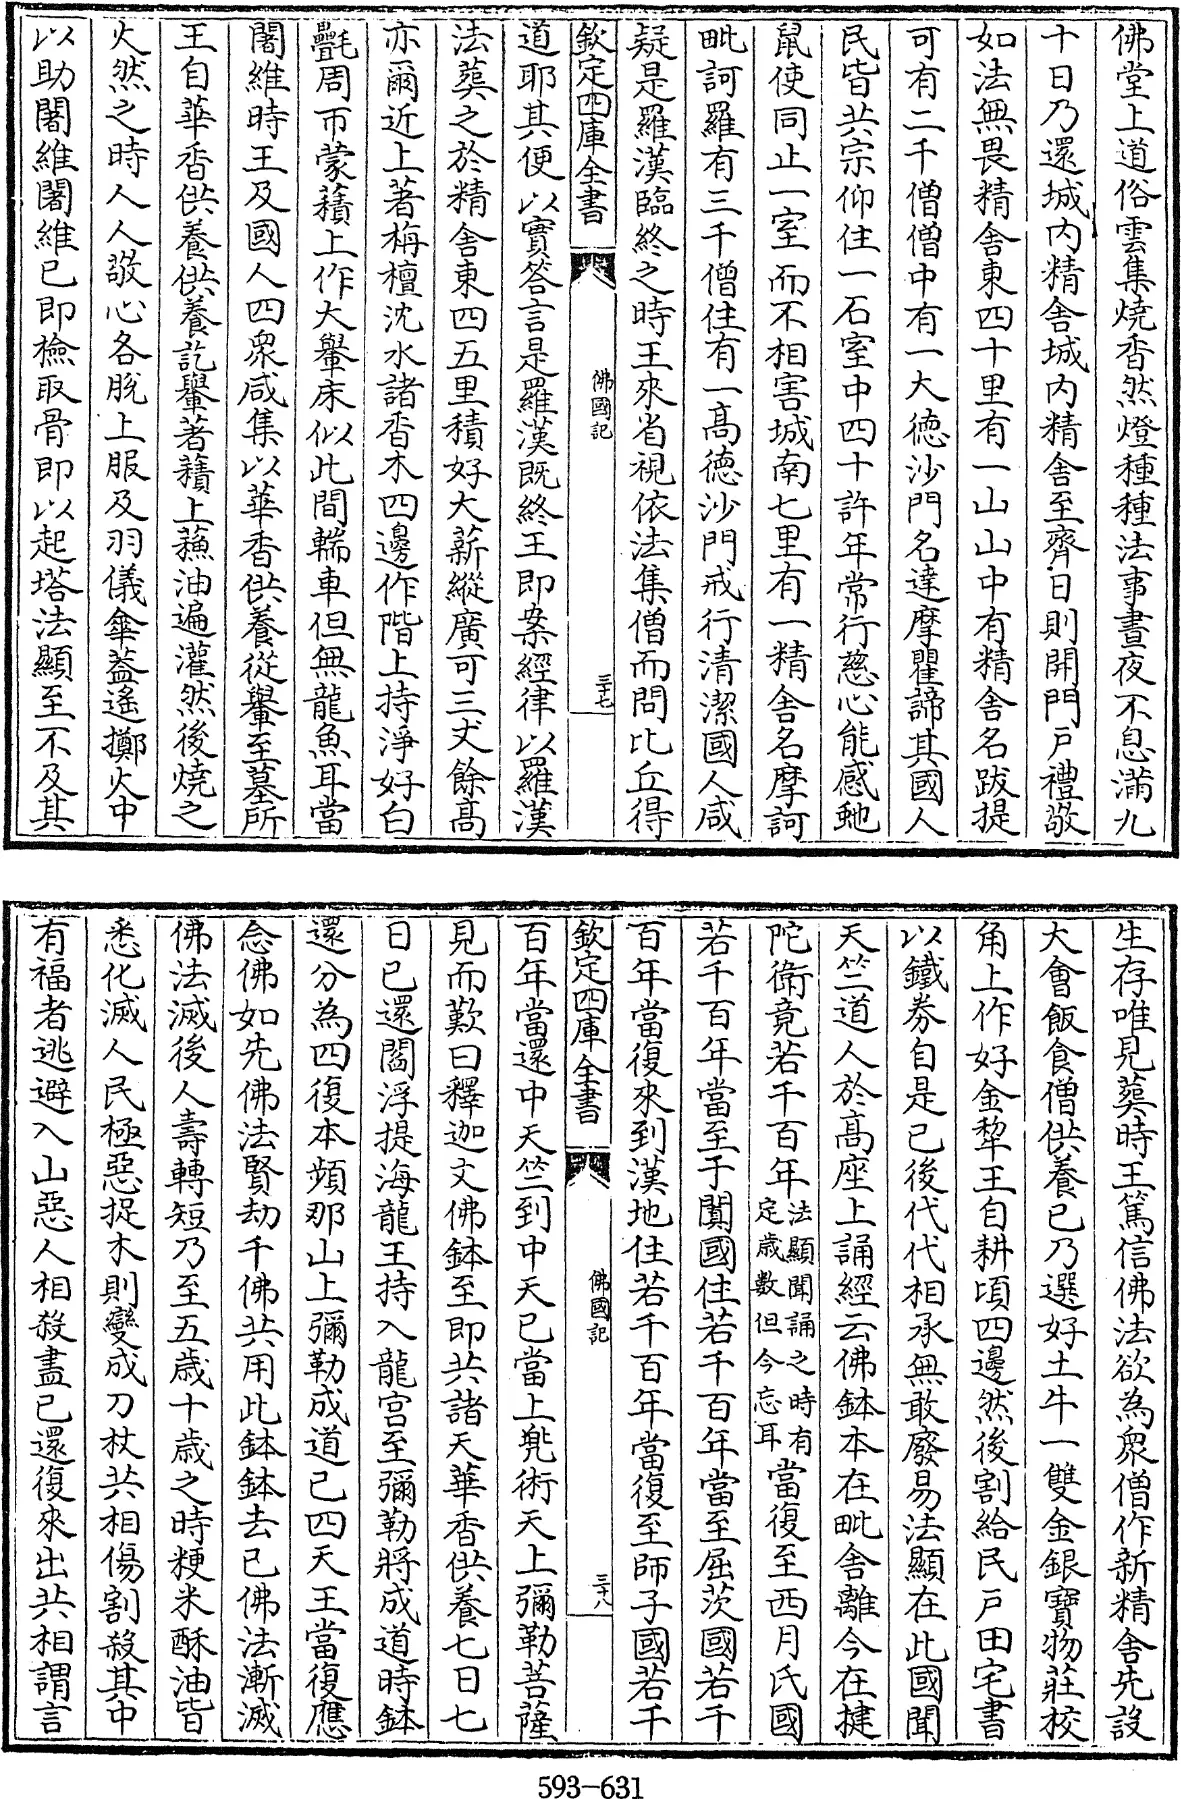 佛堂上道俗雲集燒香然燈種種法事晝夜不息滿九
十日乃還城內精舍城內精舍至齊日則開門戶禮敬
如法無畏精舍東四十里有一山山中有精舍名跋提
可有二千僧僧中有一大德沙門名達摩瞿諦其國人
民皆共宗仰住一石室中四十許年常行慈心能感虵
鼠使同止一室而不相害城南七里有一精舍名摩訶
毗訶羅有三千僧住有一高德沙門戒行清潔國人咸
疑是羅漢臨終之時王來省視依法集僧而問比丘得
欽定四庫全書
佛國記
三十七
道耶其便以實答言是羅漢既終王即案經律以羅漢
法葬之於精舍東四五里積好大薪縱廣可三丈餘高
亦爾近上著栴檀沈水諸香木四邊作階上持淨好白
㲲周帀蒙𧂐上作大轝床似此間輀車但無龍魚耳當
闍維時王及國人四眾咸集以華香供養從轝至墓所
王自華香供養供養訖轝著𧂐上蘓油遍灌然後燒之
火然之時人人敬心各脫上服及羽儀傘葢遙擲火中
以助闍維闍維已即檢取骨即以起塔法顯至不及其
生存唯見葬時王篤信佛法欲為衆僧作新精舍先設
大會飯食僧供養已乃選好土牛一雙金銀寶物莊校
角上作好金犂王自耕頃四邊然後割給民戶田宅書
以鐵券自是已後代代相承無敢廢易法顯在此國聞
天竺道人於高座上誦經云佛鉢本在毗舍離今在揵
陀衛竟若干百年法顯聞誦之時有定歲數但今忘耳當復至西月氏國
若干百年當至于闐國住若干百年當至屈茨國若干
百年當復來到漢地住若干百年當復至師子國若干
欽定四庫全書
佛國記
三十八
百年當還中天竺到中天已當上兠術天上彌勒菩薩
見而歎曰釋迦文佛鉢至即共諸天華香供養七日七
日已還閻浮提海龍王持入龍宮至彌勒將成道時鉢
還分為四復本頻那山上彌勒成道已四天王當復應
念佛如先佛法賢劫千佛共用此鉢鉢去已佛法漸滅
佛法滅後人壽轉短乃至五歲十歲之時粳米酥油皆
悉化滅人民極惡捉木則變成刀杖共相傷割殺其中
有福者逃避入山惡人相殺盡已還復來出共相謂言
593-631